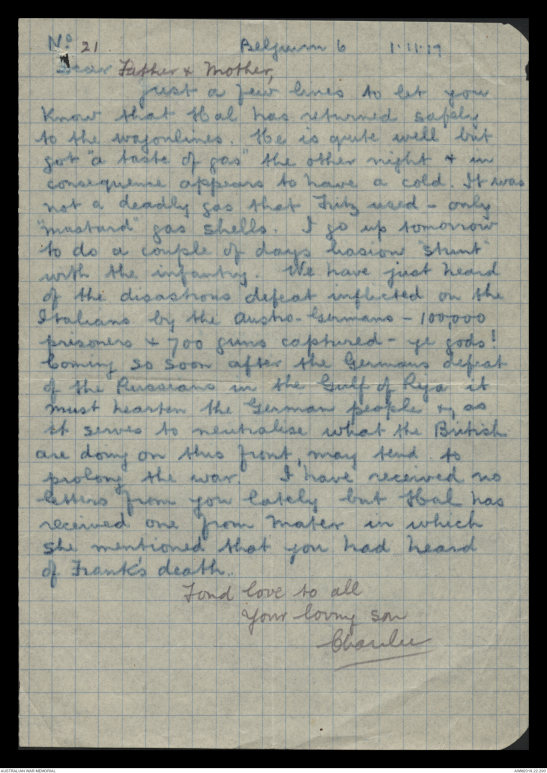 No 21 Belgium 6 1.11.17
Dear Father & Mother,
Just a few lines to let you
know that Hal has returned safely
to the wagonlines. He is quite well but
got "a taste of gas" the other night & in
consequence appears to have a cold. It was
not a deadly gas that Fritz used - only
"mustard" gas shells. I go up tomorrow
to do a couple of days liasion "stunt"
with the infantry. We have just heard
of the disastrous defeat inflicted on the
Italians by the Austro-Germans - 100,000
prisoners & 700 guns captured - ye gods!
Coming so soon after the Germans defeat
of the Russians in the Gulf of Ryga it
must hearten the German people &, as
it serves to neutralise what the British
are doing on this front, may tend to
prolong the war. I have received no
letters from you lately but Hal has
received one from Mater in which
she mentioned that you had heard
of Frank's death.
Fond love to all
Your loving son
Charlie
AUSTRALIAN WAR MEMORIAL